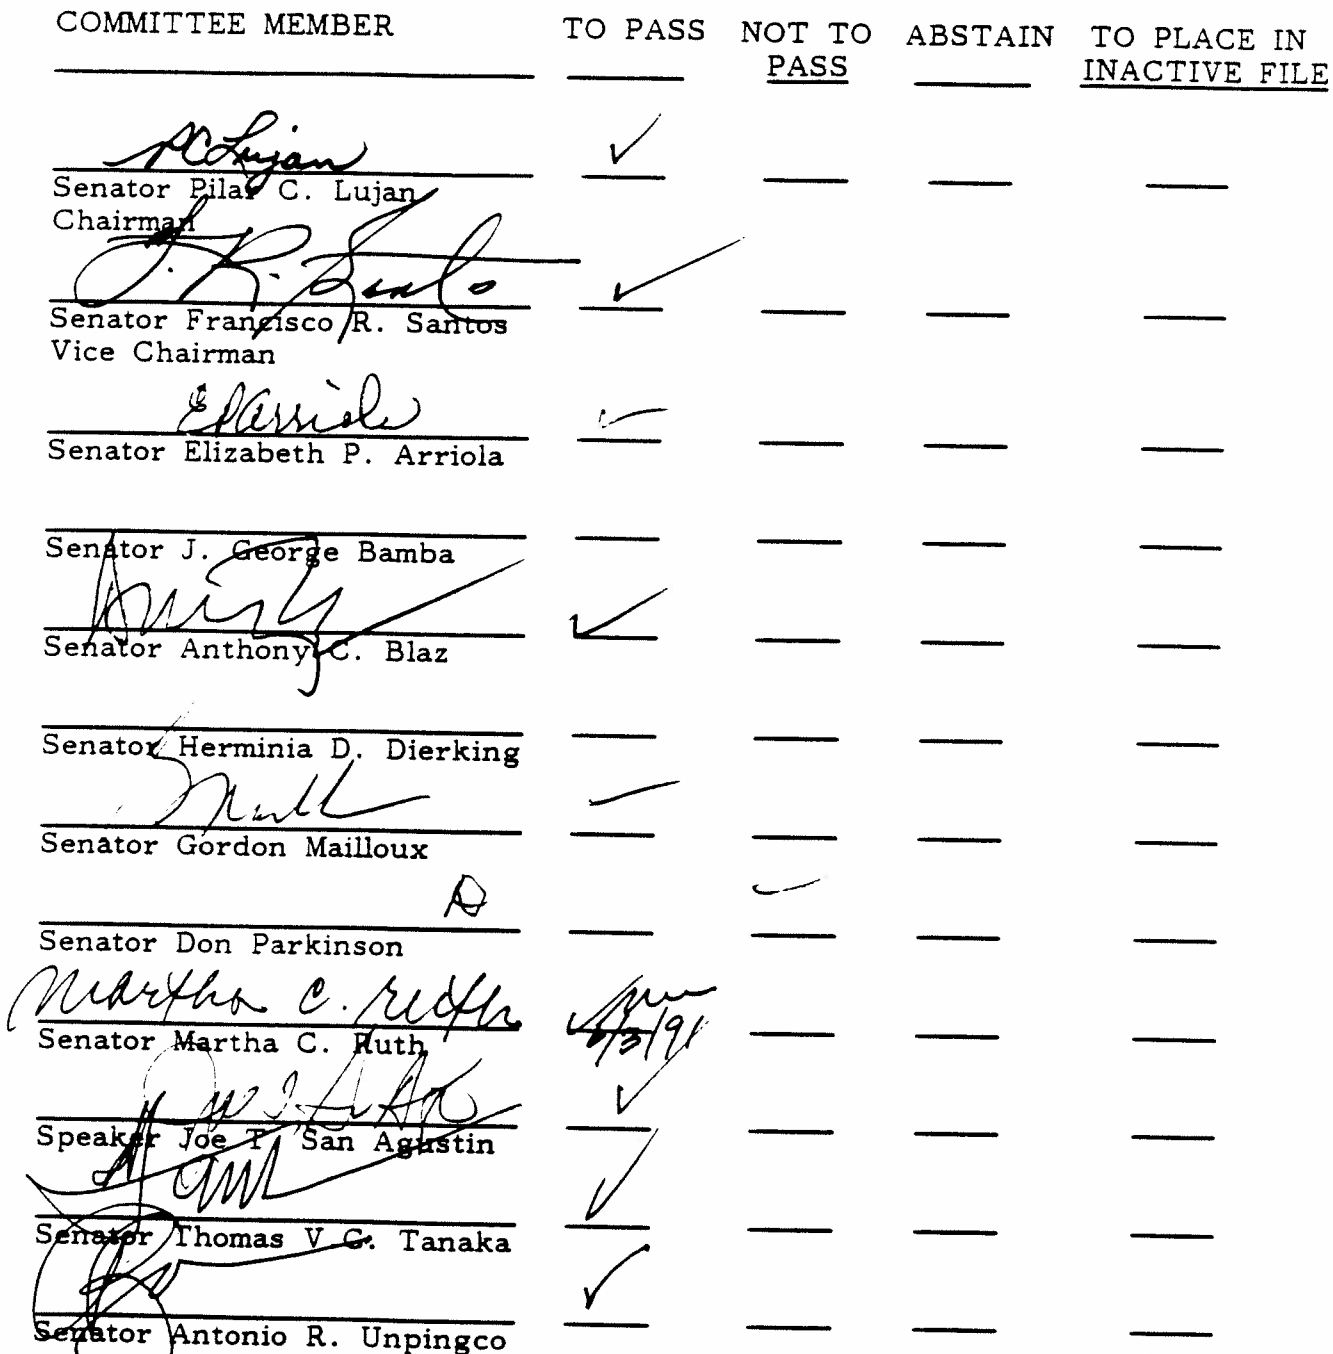 COMMITTEE MEMBER TO PASS NOT TO PASS ABSTAIN TO PLACE IN INACTIVE FILE
PC Lujan ✓
Senator Pilar C. Lujan
Chairman
F. R. Santos ✓
Senator Francisco R. Santos
Vice Chairman
EPArriola ✓
Senator Elizabeth P. Arriola
Senator J. George Bamba
✓
Senator Anthony C. Blaz
Senator Herminia D. Dierking
✓
Senator Gordon Mailloux
✓
Senator Don Parkinson
Martha C. Ruth ✓ 6/3/91
Senator Martha C. Ruth
✓
Speaker Joe T. San Agustin
✓
Senator Thomas V. C. Tanaka
✓
Senator Antonio R. Unpingco